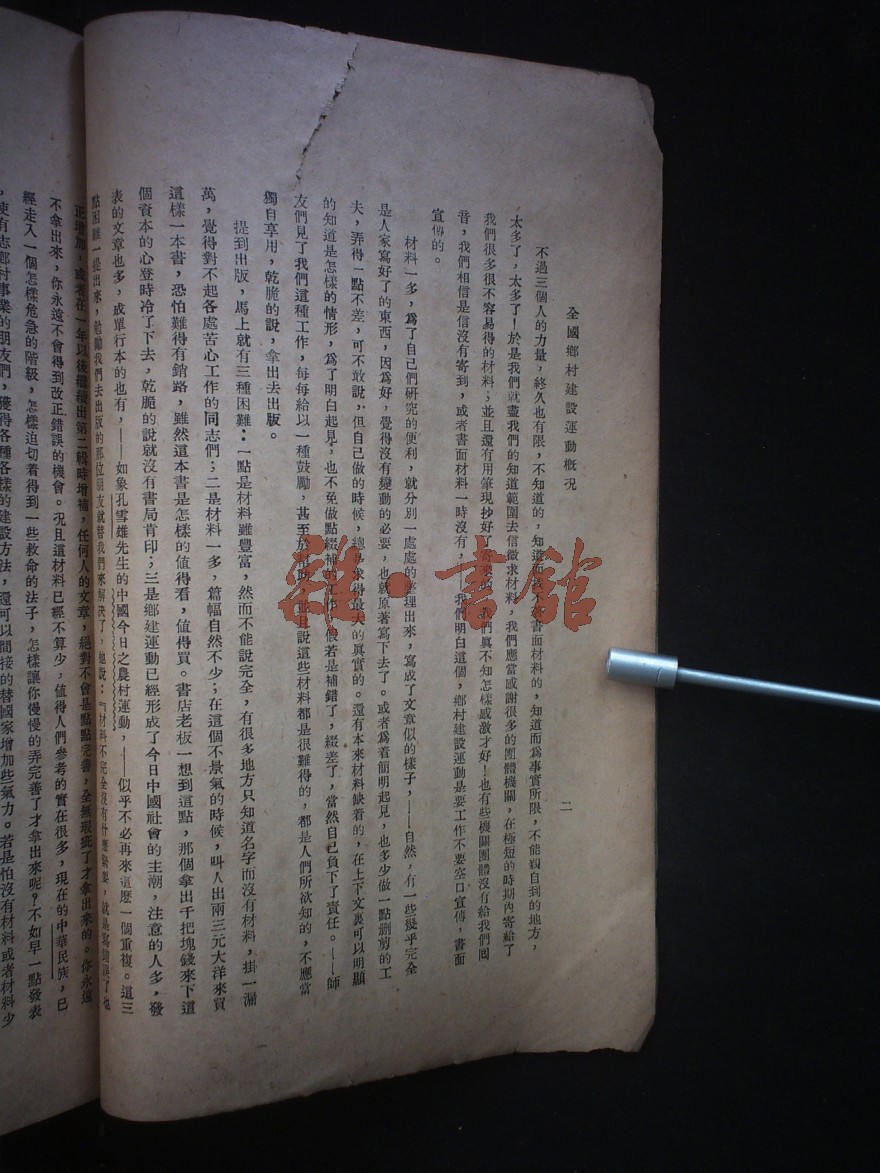 全國鄉村建設運動概況
二
不過三個人的力量，終久也有限，不知道的，知道而找不着書面材料的，知道而為事實所限，不能親自到的地方，
太多了，太多了！於是我們就盡我們的知道範圍去信徵求材料，我們應當感謝很多的團體機關，在極短的時期內寄給了
我們很多很不容易得的材料；並且還有用筆現抄好了寄來的，我們真不知怎樣感激才好！也有些機關團體沒有給我們囘
音，我們相信是信沒有寄到，或者書面材料一時沒有，——我們明白這個，鄉村建設運動是要工作不要空口宣傳，書面
宣傳的。
材料一多，為了自己們研究的便利，就分別一處處的整理出來，寫成了文章似的樣子，——自然，有一些幾乎完全
是人家寫好了的東西，因為好，覺得沒有變動的必要，也就原著寫下去了。或者為着簡明起見，也多少做一點刪剪的工
夫，弄得一點不差，可不敢說，但自己做的時候，總是求得最大的真實的。還有本來材料缺着的，在上下文裏可以明顯
的知道是怎樣的情形，為了明白起見，也不免做點綴補的工作，假若是補錯了，綴差了，當然自己負下了責任。——師
友們見了我們這種工作，每每給以一種鼓勵，甚至於幫助，並且說這些材料都是很難得的，都是人們所欲知的，不應當
獨自享用，乾脆的說，拿出去出版。
提到出版，馬上就有三種困難：一點是材料雖豐富，然而不能說完全，有很多地方只知道名字而沒有材料，掛一漏
萬，覺得對不起各處苦心工作的同志們；二是材料一多，篇幅自然不少；在這個不景氣的時候，叫人出兩三元大洋來買
這樣一本書，恐怕難得有銷路，雖然這本書是怎樣的值得看，值得買。書店老板一想到這點，那個拿出千把塊錢來下這
個資本的心登時冷了下去，乾脆的說就沒有書局肯印；三是鄉建運動已經形成了今日中國社會的主潮，注意的人多，發
表的文章也多，成單行本的也有，——如象孔雪雄先生的中國今日之農村運動，——似乎不必再來這麼一個重複。這三
點困難一提出來，勉勵我們去出版的那位朋友就替我們來解決了，他說：『材料不完全沒有什麼緊要，就是寫錯誤了也
，或者在一年以後繼續出第二輯時增補，任何人的文章，絕對不會是點點完善，全無瑕疵了才拿出來的。你永遠
不拿出來，你永遠不會得到改正錯誤的機會。况且這材料已經不算少，值得人們參考的實在很多，現在的中華民族，已
經走入一個怎樣危急的階級，怎樣迫切着得到一些救命的法子，怎樣讓你慢慢的弄完善了才拿出來呢？不如早一點發表
，使有志鄉村事業的朋友們，獲得各種各樣的建設方法，還可以間接的替國家增加些氣力。若是怕沒有材料或者材料少
雜·書館